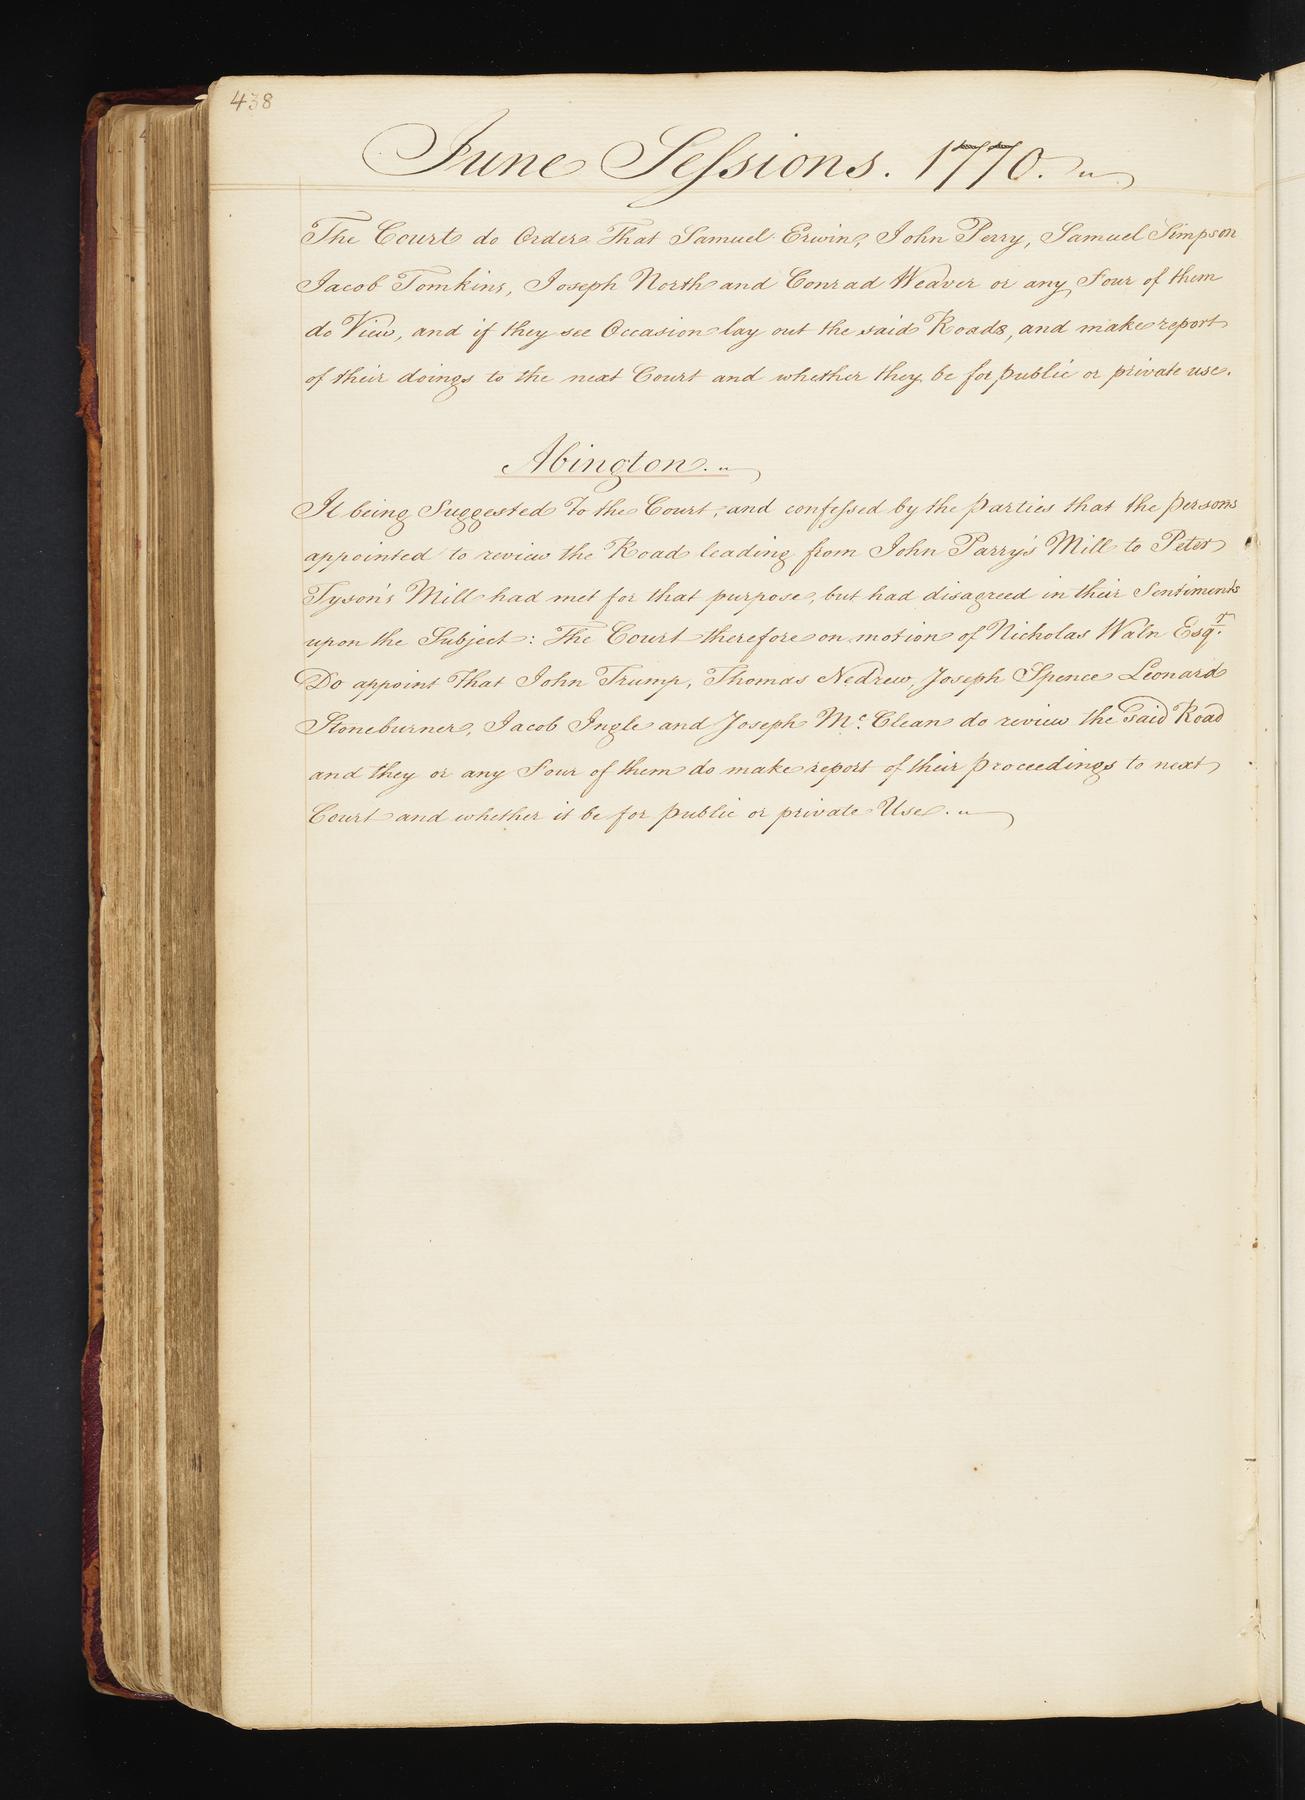 438
June Sessions. 1770.
The Court do Order That Samuel Erwin, John Perry, Samuel Simpson
Jacob Tomkins, Joseph North and Conrad Weaver or any Four of them
do View, and if they see Occasion lay out the said Roads, and make report
of their doings to the next Court and whether they be for public or private use.
Abington.
It being Suggested To the Court, and confessed by the Parties that the persons
appointed to review the Road leading from John Parry's Mill to Peter
Tyson's Mill had met for that purpose, but had disagreed in their Sentiments
upon the Subject: The Court therefore on motion of Nicholas Waln Esqr.
Do appoint That John Trump, Thomas Nedrew, Joseph Spence Leonard
Stoneburner, Jacob Ingle and Joseph Mc. Clean do review the Said Road
and they or any Four of them do make report of their proceedings to next
Court and whether it be for public or private Use.